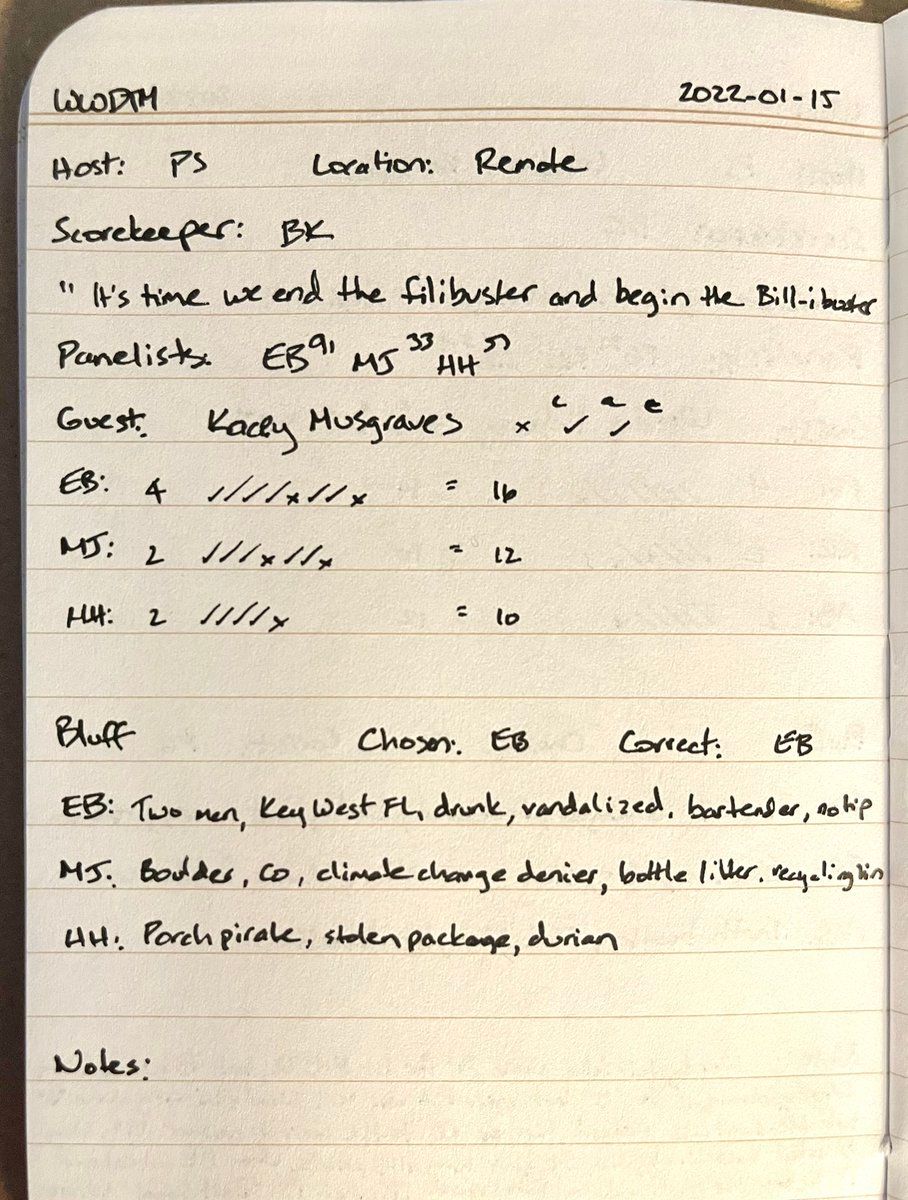 WWDTM 2022-01-15
Host: PS Location: Remote
Scorekeeper: BK
"It's time we end the filibuster and begin the Bill-ibuster
Panelists: EB 91 MJ 33 HH
Guest: Kacey Musgraves × ✓ ✓ c a c
EB: 4 ✓✓✓✓×✓✓× = 16
MJ: 2 ✓✓✓×✓✓× = 12
HH: 2 ✓✓✓✓× = 10
Bluff Chosen: EB Correct: EB
EB: Two men, Key West FL, drunk, vandalized, bartender, no tip
MJ: Boulder, CO, climate change denier, bottle litter, recycling bin
HH: Porch pirate, stolen package, durian
Notes: